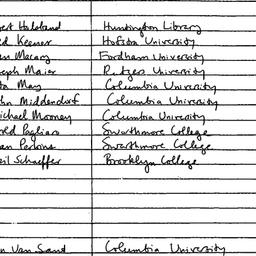 Halsband Huntington Library
Keener Hofstra University
Macary Fordham University
Maier Rutgers University
May Columbia University
Middendorf Columbia University
Michael Mooney Columbia University
Pagliaro Swarthmore College
Perkins Swarthmore College
Schaeffer Brooklyn College
Van Sant Columbia University